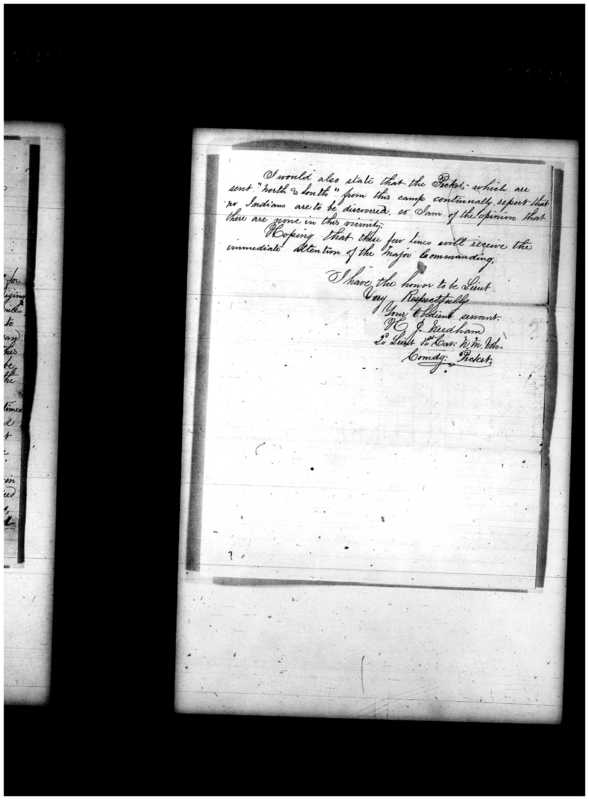 I would also state that the Picket- which are
sent "North & South" from this camp continually report that
no Indians are to be discovered, so I am of the opinion that
there are none in this vicinity.
Hoping that these few lines will receive the
immediate attention of the Major Commanding,
I have the honor to be Lieut
Very Respectfully
Your Obdient servant.
J. Needham
2d Lieut 1st Cav. N.M. Vols.
Comdg. Picket.
for
to
be
the
times